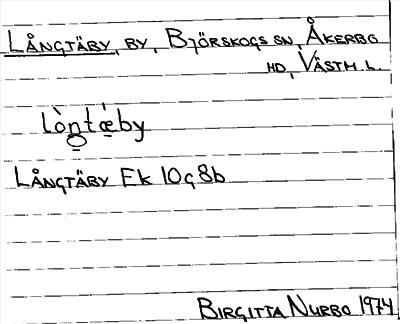 LÅNGTÄBY, BY, BJÖRSKOGS SN, ÅKERBO
HD, VÄSTM. L.
lòn̥tǽby
LÅNGTÄBY Ek 10g8b
BIRGITTA NURBO 1974